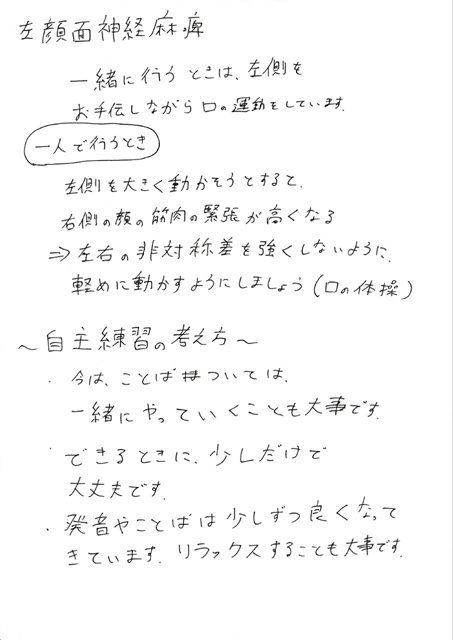 左顔面神経麻痺
一緒に行うときは、左側を
お手伝しながら口の運動をしています。
一人で行うとき
左側を大きく動かそうとすると、
右側の顔の筋肉の緊張が高くなる
⇒左右の非対称差を強くしないように、
軽めに動かすようにしましょう(口の体操)
〜自主練習の考え方〜
・今は、ことばについては、
一緒にやっていくことも大事です。
・できるときに、少しだけで
大丈夫です。
・発音やことばは少しずつ良くなって
きています。リラックスすることも大事です。